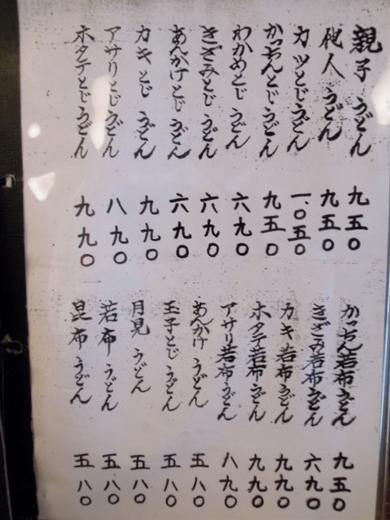 親子うどん 九五〇
他人うどん 九五〇
カツとじうどん 一、〇五〇
かつちんとじうどん 九五〇
わかめとじうどん 六九〇
きざみとじうどん 六九〇
あんかけとじうどん 六九〇
カキとじうどん 九九〇
アサリとじうどん 八九〇
ホタテとじうどん 九九〇
かつちん若布うどん 九五〇
きざみ若布うどん 六九〇
カキ若布うどん 九九〇
ホタテ若布うどん 九九〇
アサリ若布うどん 八九〇
あんかけうどん 五八〇
玉子とじうどん 五八〇
月見うどん 五八〇
若布うどん 五八〇
昆布うどん 五八〇